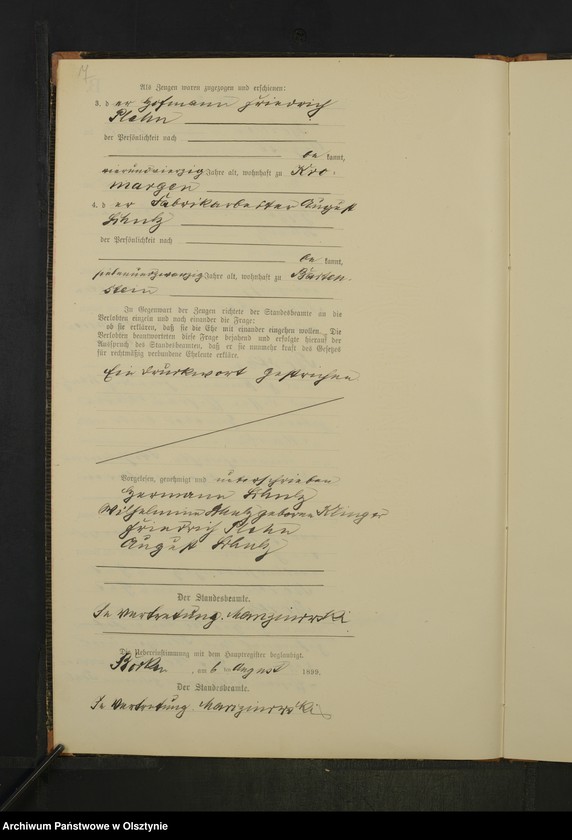 17
Als Zeugen waren zugezogen und erschienen:
3. der Hofmann Friedrich
Plehn
der Persönlichkeit nach
be kannt,
vierundvierzig Jahre alt, wohnhaft zu Kro-
margen
4. der Fabrikarbeiter August
Schulz
der Persönlichkeit nach
be kannt,
siebenundzwanzig Jahre alt, wohnhaft zu Barten-
stein
In Gegenwart der Zeugen richtete der Standesbeamte an die
Verlobten einzeln und nach einander die Frage:
ob sie erklären, daß sie die Ehe mit einander eingehen wollen. Die
Verlobten beantworteten diese Frage bejahend und erfolgte hierauf der
Ausspruch des Standesbeamten, daß er sie nunmehr kraft des Gesetzes
für rechtmäßig verbundene Eheleute erkläre.
Ein Druckwort gestrichen
Vorgelesen, genehmigt und unterschrieben
Hermann Schulz
Wilhelmine Schulz geborene Klinger
Friedrich Plehn
August Schulz
Der Standesbeamte.
In Vertretung.
Die Uebereinstimmung mit dem Hauptregister beglaubigt.
Borken, am 6 August 1889.
Der Standesbeamte.
In Vertretung.
Archiwum Państwowe w Olsztynie